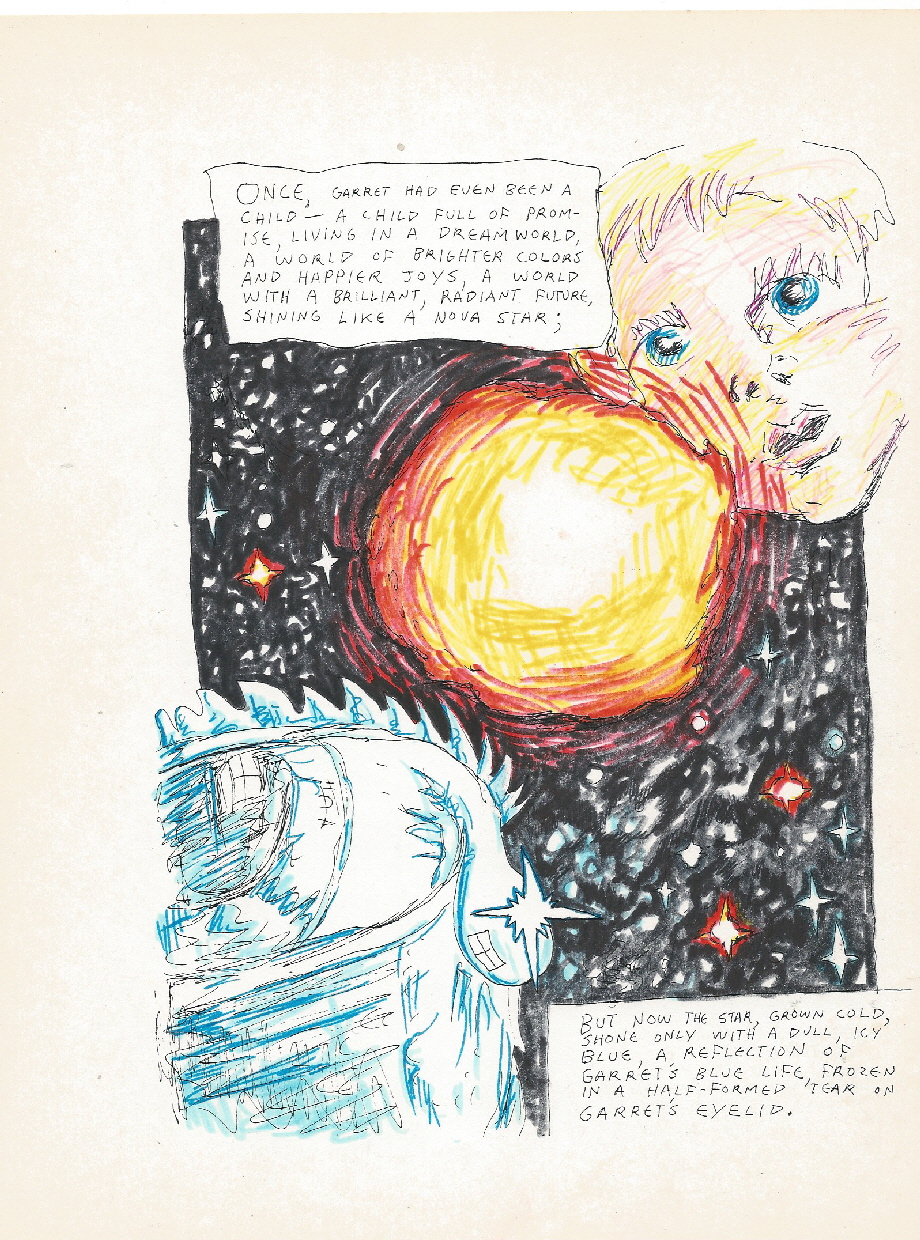 ONCE, GARRET HAD EVEN BEEN A
CHILD — A CHILD FULL OF PROM-
ISE, LIVING IN A DREAMWORLD,
A WORLD OF BRIGHTER COLORS
AND HAPPIER JOYS, A WORLD
WITH A BRILLIANT, RADIANT FUTURE,
SHINING LIKE A NOVA STAR;
BUT NOW THE STAR, GROWN COLD,
SHONE ONLY WITH A DULL, ICY
BLUE, A REFLECTION OF
GARRET'S BLUE LIFE, FROZEN
IN A HALF-FORMED TEAR ON
GARRET'S EYELID.